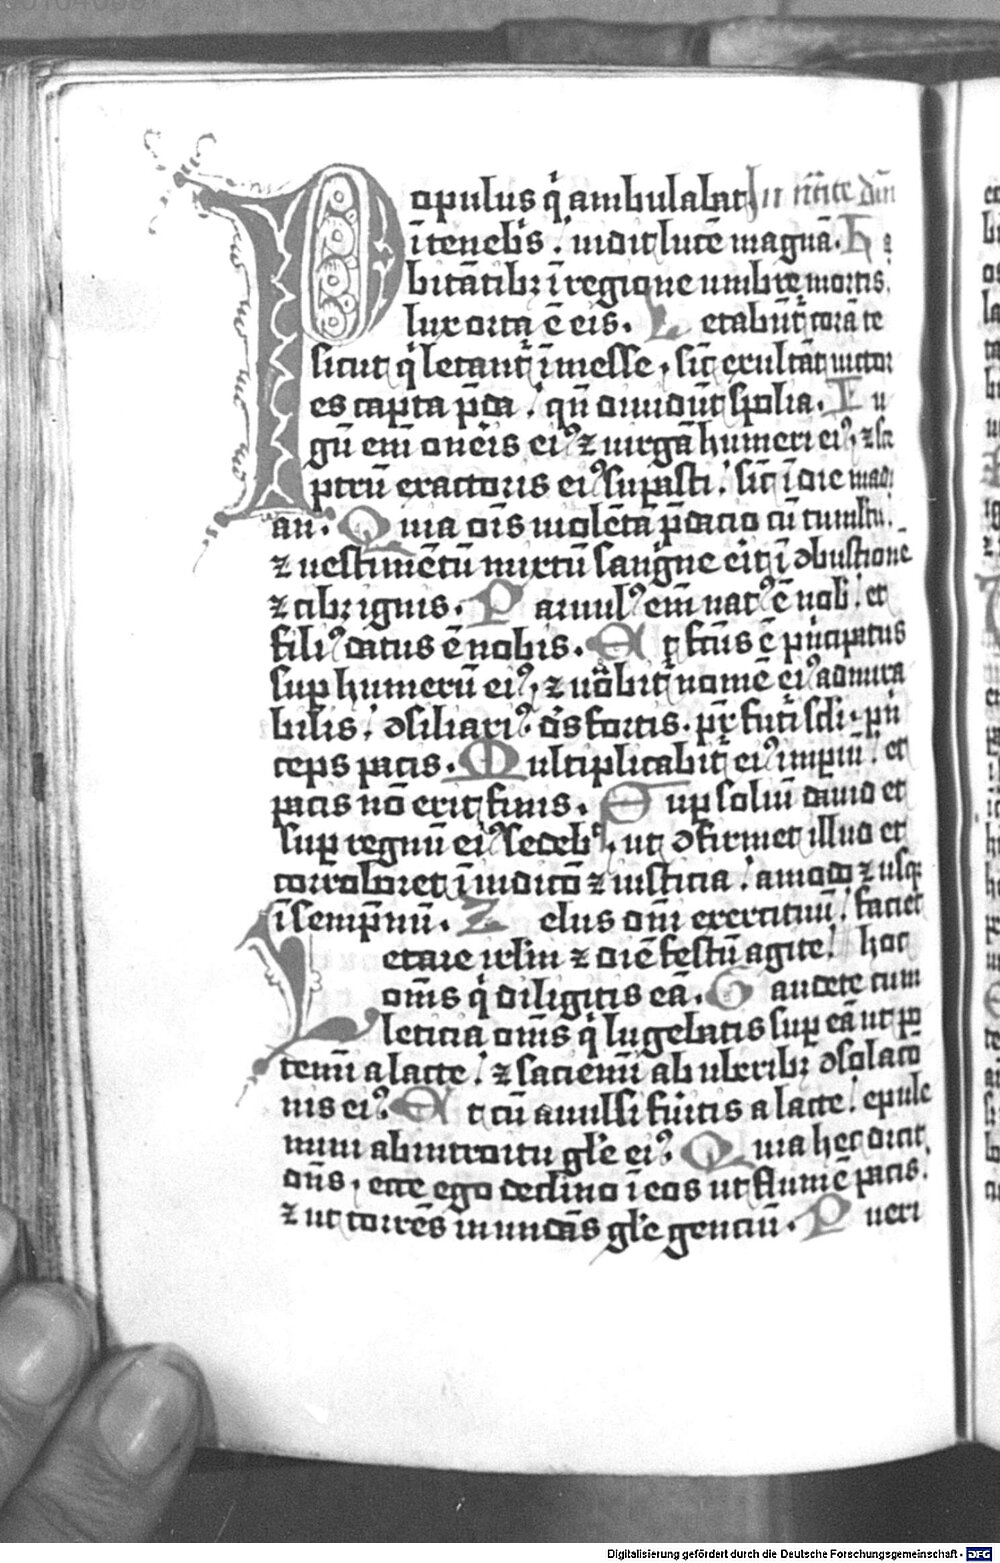 Populus q̇ ambulabat In nr̄ite dn̄i
ī teneb̄s . uidit lucē magnā . ha
bitātibꝫ ī regione umbre mortis .
lux orta ē eis . Letabūt̉ corā te
sicut q̇ letant̉ ī messe . sic̄ exultāt uictor
es capta p̄da . qn̄ diuidūt spolia . Iu
gū em̄ on̄eis ei᷒ ⁊ uirgā humeri ei᷒ . ⁊ sce
ptrū exactoris ei᷒ suꝑasti . sic̄ ī die madi
an . Quia oīs uiolēta p̄dacio cū tumltu .
⁊ uestimētū mixtū sangine erit ī ↄbustionē
⁊ cibꝫ ignis . Paruul᷒ em̄ nat᷒ ē nob̄ . et
fili᷒ datus ē nobis . Et fc̄us ē pͥncipatus
suꝑ humerū ei᷒ . ⁊ uo̅bit̉ nomē ei᷒ admira
bilis . ↄsiliari᷒ . ds̄ fortis . pr̄ fut̉i scl̄i . pͥn
ceps pacis . Multiplicabit̉ ei᷒ impiū . et
pacis nō erit finis . Suꝑ soliū dauid et
suꝑ regnū ei᷒ sedebͭ . ut ↄfirmet illud et
corroboret ī iudicō ⁊ iusticia . amodo ⁊ usqꝫ
ī semp̄nū . Zelus dn̄i exercituū . faciet
Letare irl̄m ⁊ diē festū agite . hoc
om̄s q̇ diligitis eā . Gaudete cum
leticia om̄s q̇ lugebatis suꝑ eā ut po
temī a lacte . ⁊ saciemī ab uberibꝫ ↄsolacō
nis ei᷒ . Et cū auulsi fūitis a lacte . epule
mini ab introitu gl̄e ei᷒ . Quia hec dicit
dn̄s . ecce ego declino ī eos ut flumē pacis .
⁊ ut torrēs inundās gl̄e genciū . Pueri
Digitalisierung gefördert durch die Deutsche Forschungsgemeinschaft - DFG